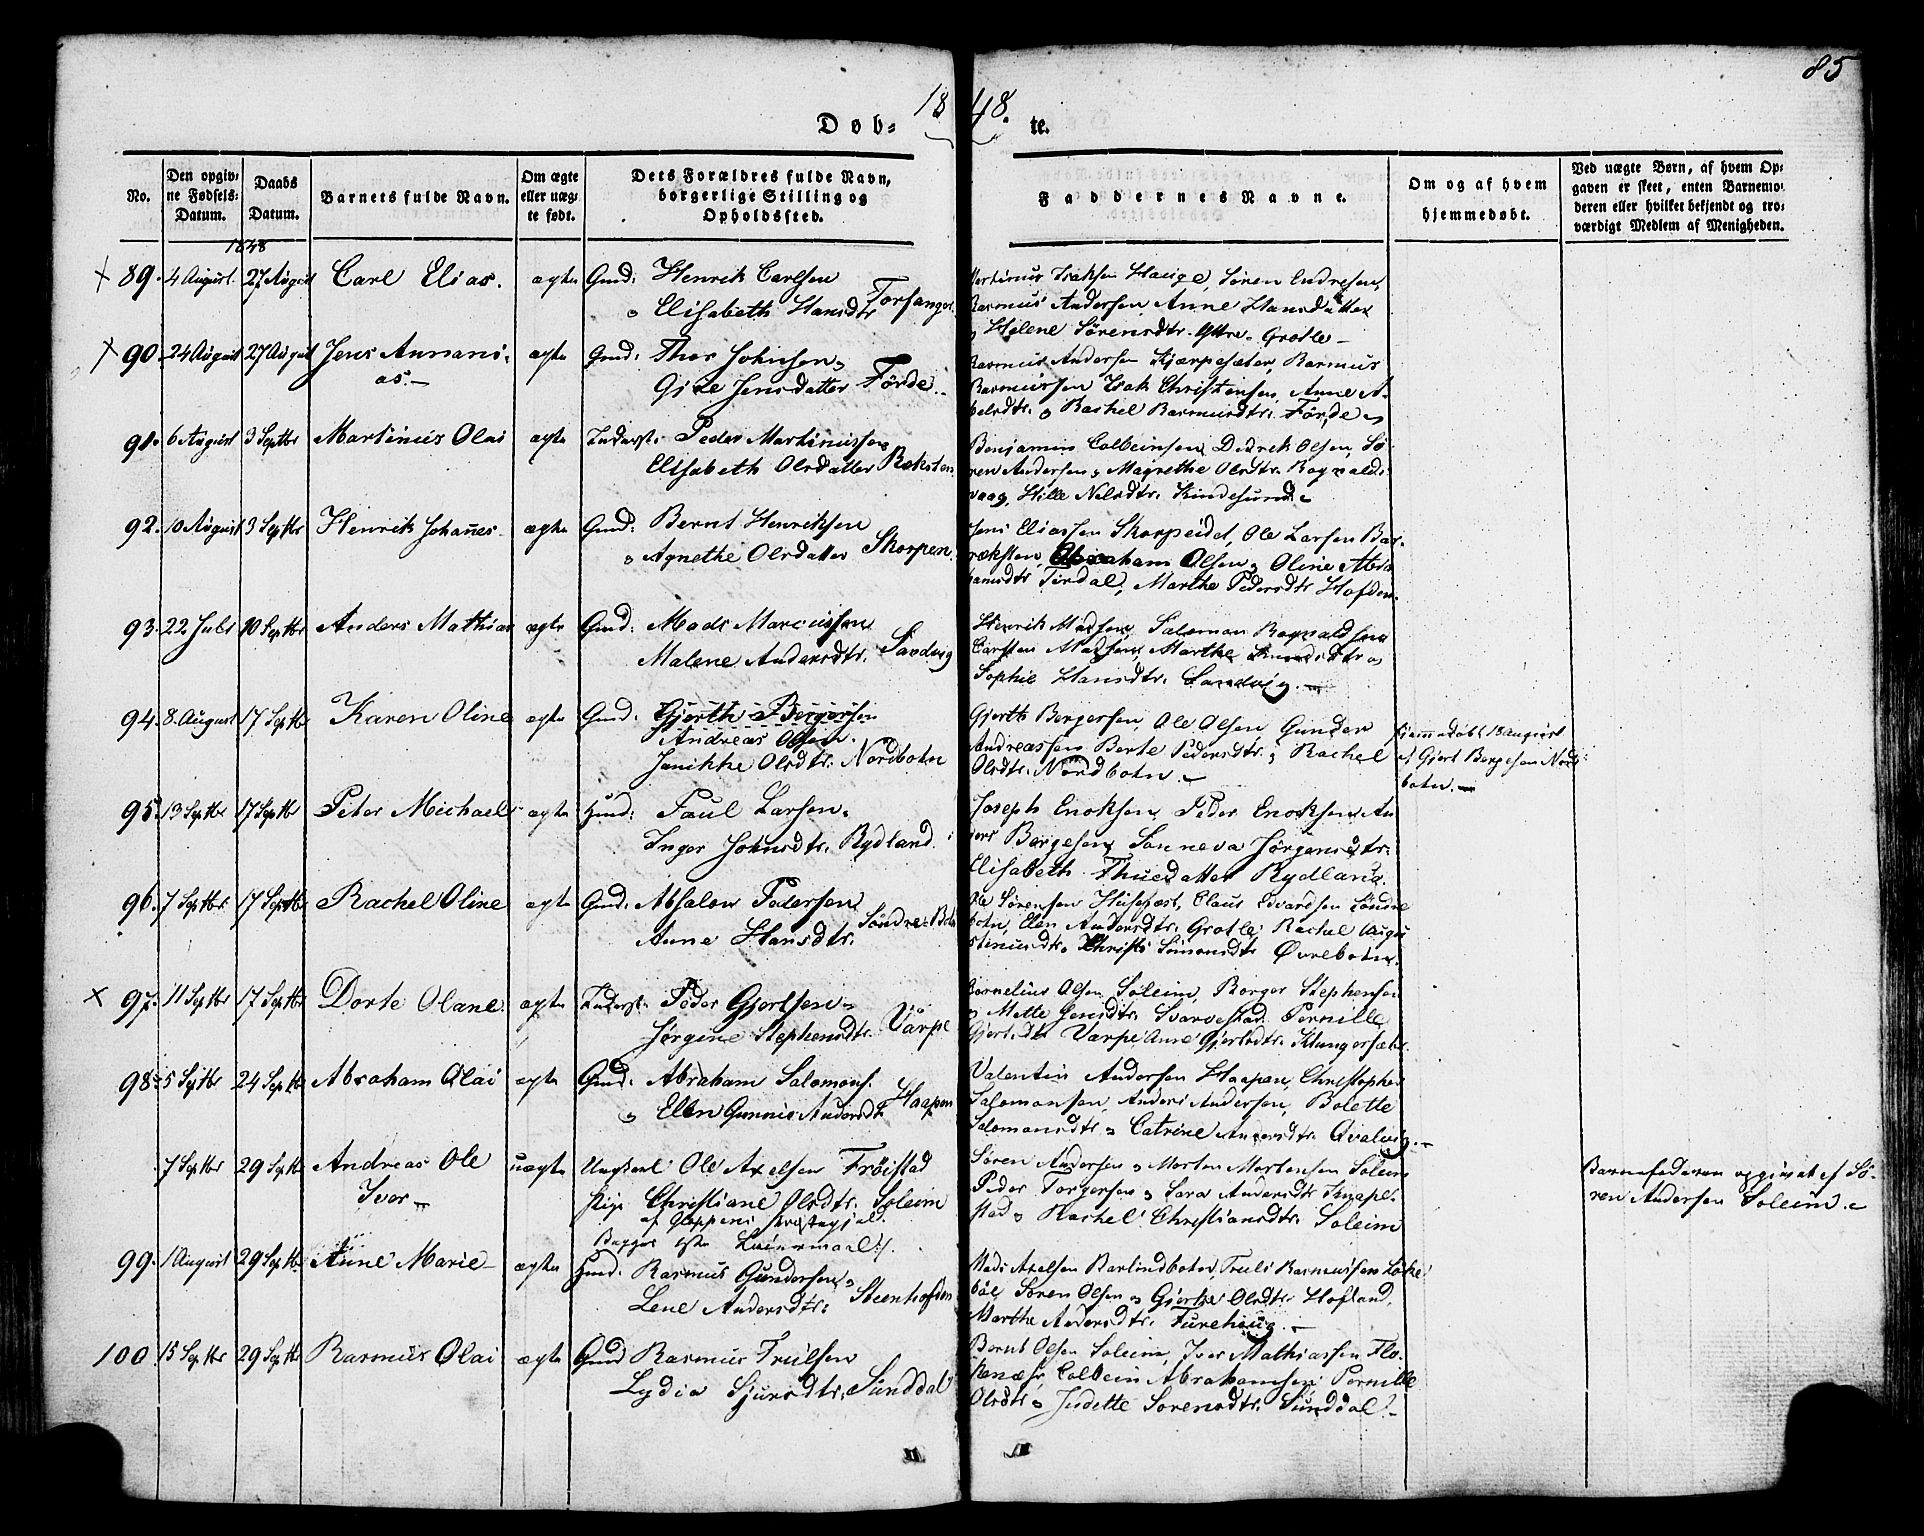 85
1848.
Døb-te.
No.
Den opgiv-
ne Fødsels-
Datum.
Daabs
Datum.
Barnets fulde Navn.
Om ægte
eller uæg-
te født.
Dets Forældres fulde Navn,
borgerlige Stilling og
Opholdssted.
Faddernes Navne.
Om og af hvem
hjemmedøbt.
Ved uægte Børn, af hvem Op-
gaven er skeet, enten Barnemo-
deren eller hvilket bekjendt og tro-
værdigt Medlem af Menigheden.
1848
× 89. 4 August. 27 August Carl Elias. ægte Gmd: Henrik Carlsen
o Elisabeth Hansdtr Torfanger.
Martinus Isaksen Hauge, Søren Endresen,
Rasmus Andersen Anne Hansdatter
o Helene Sørensdtr. Yttre-Grotle—
× 90. 24 August 27 August Jens Annani-
as.— ægte Gmd: Thor Johnsen o
Gize Jensdatter Förde.
Rasmus Andersen Kjærpesæter, Rasmus
Rasmussen Isak Christensen, Anne A-
belsdtr. o Rachel Rasmusdtr. Förde
91. 6 August 3 Septbr Martinus Olai ægte Inderst: Peder Martinussen
Elisabeth OlsdatterRæksten
Benjamin Colbeinsen, Didrek Olsen, Sö-
ren Andersen o Magrethe Olsdtr. Rognalds-
vaag, Hille Nilsdtr. Kindesund
92. 10 August 3 Septbr Henrik Johanes. ægte Gmd: Bernt Henriksen
o Agnethe Olsdatter Skorpen.
Jens Eliassen Skorpeidet, Ole Larsen Ba-
ræksten, Abraham Olsen o Oline Abra-
hamsdtr Tindal, Marthe Pedersdtr Hofden.
93. 22 Juli 10 Septbr Anders Mathias ægte Gmd: Mads Marcussen
Malene Andersdtr. Sandvig
Henrik Madsen, Salomon Rognaldsen
Carsten Madsen, Marthe dtr o
Sophie Hansdtr. Sandvig.—
94. 8. August 17 Septbr Karen Oline ægte Gmd: Gjerth Bergersen
Andreas Olsen.
Janikke Olsdtr. Nordbotn
Gjerth Bergersen, Ole Olsen, Gunder
Andreassen Berte Pedersdtr. o Rachel
Olsdtr. Nordbotn.—
Hjemmedöbt 13 August
af Gjert Bergesen Nord-
botn.—
95. 13 Septbr 17 Septbr Peter Michael ægte Gmd: Paul Larsen.
Inger Johnsdtr. Rydland.
Joseph Enoksen, Peder Enoksen, An-
ders Børgesen, Sanneva Jørgensdtr.
Elisabeth Thuesdatter Rydland.
96. 7 Septbr 17 Septbr Rachel Oline ægte Gmd: Absalon Pedersen
Anne Hansdtr. Söndre-Botn
Ole Sørensen Husefæst, Claus Edvardsen Söndre
botn, Elen Andersdtr. Grotle Rachel Augu-
stinusdtr. Christi Simonsdtr Övrebotn.
× 97. 11 Septbr 17 Septbr Dorte Olane. ægte Inderst: Peder Gjertsen o
Jørgine Stephensdtr. Varpe
Cornelius Olsen Soleim, Berger Stephensen
o Mette Jensdtr. Svarvestad. Pernille
Gjertsdtr Varpe Anne Gjertsdtr. Klungersæter.
98. 5 Septbr 24 Septbr Abraham Olai ægte Gmd: Abraham Salomons.
o Elen Gunnie Andersdtr Haapen
Valentin Andersen Haapen, Christopher
Salomonsen, Anders Andersen, Bolette
Salomonsdtr o Catrine Andersdtr. Qvalvig.—
7 Septbr 29 Septbr Andreas Ole
Iver— uægte Ungkarl Ole Axelsen Fröistad
Pige Christiane Olsdtr. Soleim
af Gloppens Præstegjeld.
Begges 1ste Leiermaal./.
Søren Andersen o Morten Mortensen Soleim
Peder Torgersen o Sara Andersdtr Knapl-
stad o Rachel Christiansdtr. Soleim
Barnefaderen opgivet af Sö-
ren Andersen Soleim.
99. 1 August 29 Septbr Anne Marie— ægte Gmd. Rasmus Gundersen o
Lene Andersdtr. Steenhofden
Mads Axelsen Barlindbotn, Truls Rasmussen Löke-
böe, Søren Olsen o Gjertie Olsdtr. Hofland,
Marthe Andersdtr. Furehaug.—
100 15 Septbr 29 Septbr Rasmus Olai ægte Gmd Rasmus Trulsen
Lydia Sjursdtr. Sunddal
Bernt Olsen Soleim, Iver Mathiassen Flo-
kenæs, Colbein Abrahamsen Pernille
Olsdtr o Judette Sorensdtr. Sunddal.—